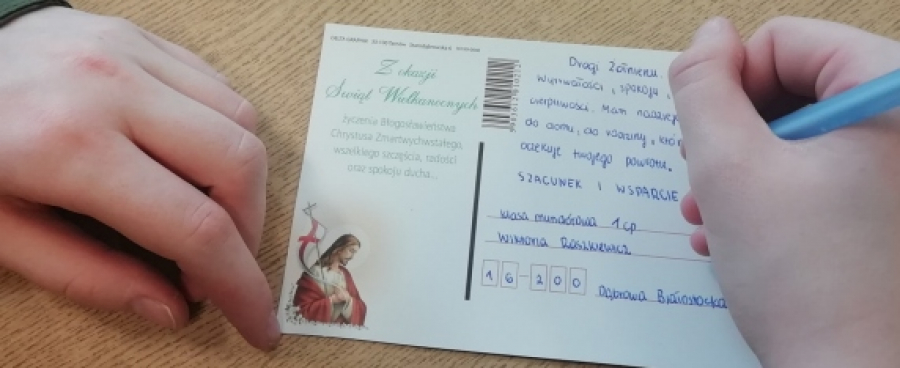 Z okazji
Świąt Wielkanocnych
życzenia Błogosławieństwa
Chrystusa Zmartwychwstałego,
wszelkiego szczęścia, radości
oraz spokoju ducha...
Drogi Żołnierzu.
Wytrwałości, spokoju,
cierpliwości. Mam nadzieję
do domu, do rodziny, któr
oczekuje twojego powrotu.
SZACUNEK I WSPARCIE
klasa mundurowa 1cp
Wiktoria Raszkiewicz
16-200 Dąbrowa Białostocka